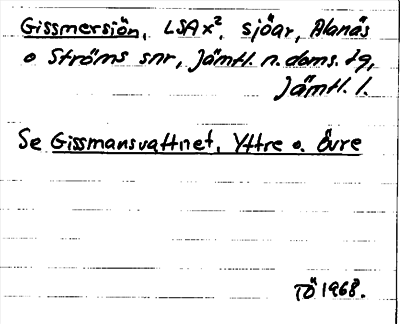 Gissmersjön, LSA x², sjöar, Alanäs
o Ströms snr, Jämtl. n. doms. tg,
Jämtl. l.
Se Gissmansvattnet, Yttre o. Övre
TÖ 1968.